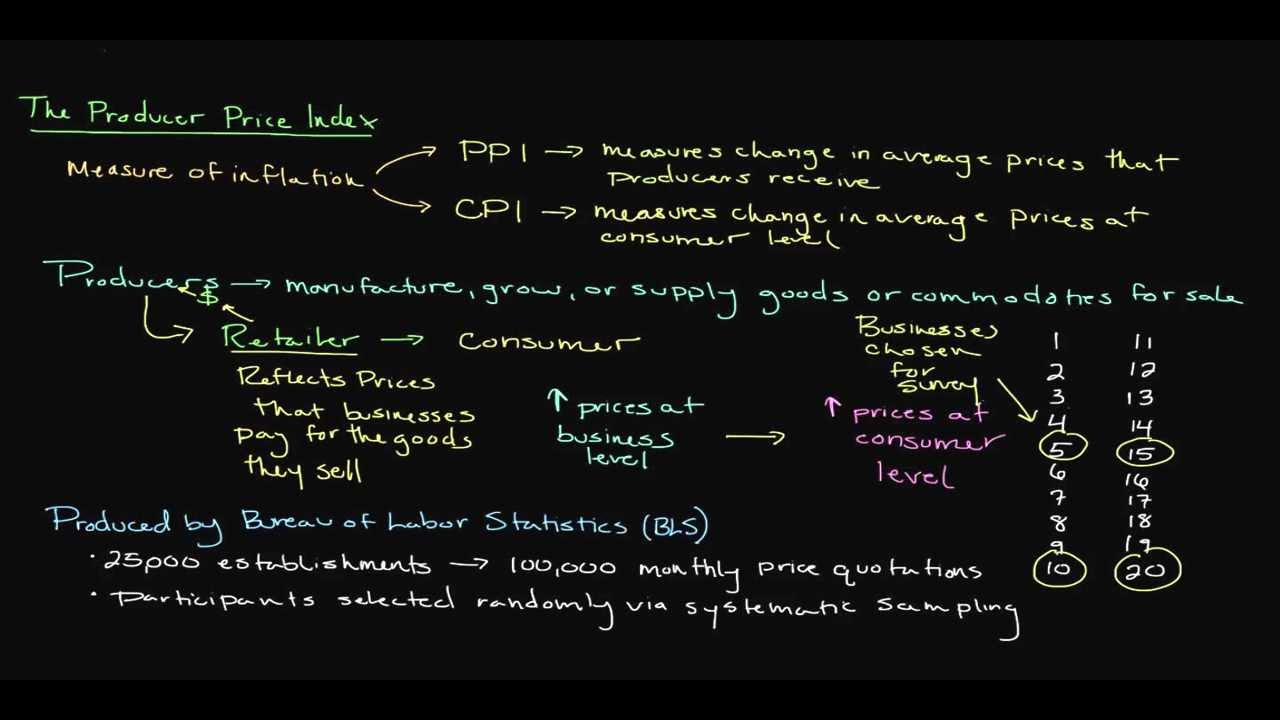 The Producer Price Index
Measure of inflation
PPI → measures change in average prices that
producers receive
CPI → measures change in average prices at
consumer level
Producers → manufacture, grow, or supply goods or commodoties for sale
$
Retailer → Consumer
Reflects Prices
that businesses
pay for the goods
they sell
↑ prices at
business
level
→
↑ prices at
consumer
level
Businesses
chosen
for
survey
1 11
2 12
3 13
4 14
5 15
6 16
7 17
8 18
9 19
10 20
Produced by Bureau of Labor Statistics (BLS)
· 25,000 establishments → 100,000 monthly price quotations
· Participants selected randomly via systematic sampling